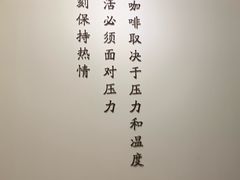 咖啡取决于压力和温度
活必须面对压力
刻保持热情